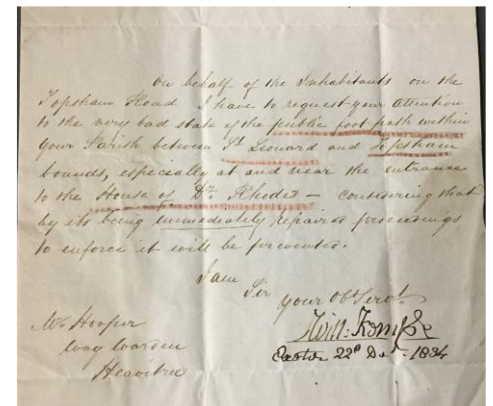 on behalf of the Inhabitants on the
Topsham Road I have to request your attention
to the very bad state of the public foot path within
your Parish between St Leonard and Topsham
bounds, especially at and near the entrance
to the House of Dr. Rhodes – considering that
by its being immediately repaired proceedings
to enforce it will be prevented.
I am
Sir
your Obt Servt
Willm: Kemp
Exeter 22d Dec 1834
Mr Hooper
Way Warden
Heavitree